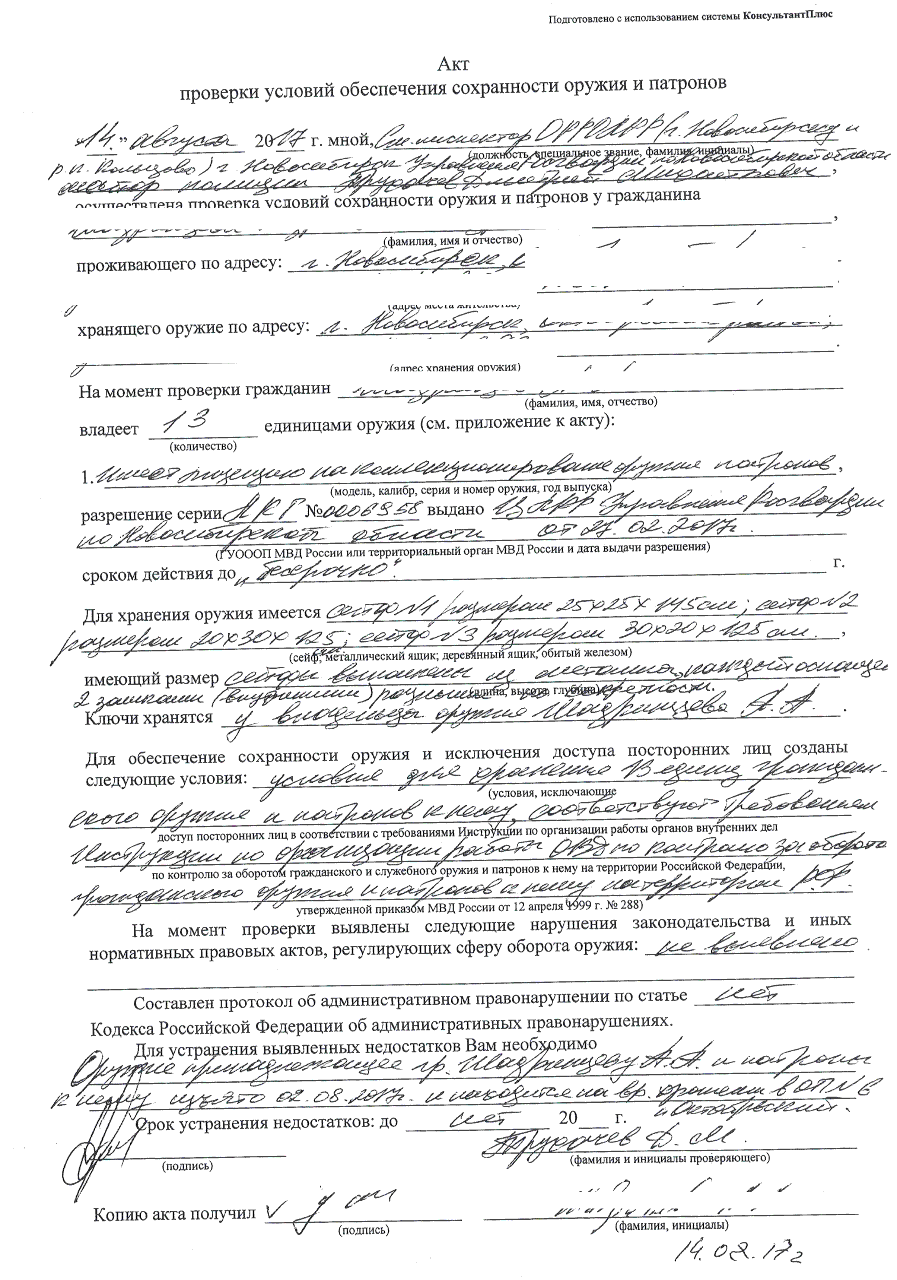 Подготовлено с использованием системы КонсультантПлюс
Акт
проверки условий обеспечения сохранности оружия и патронов
"14" августа 2017 г. мной, Ст. инспектор ОРРОЛРР (г. Новосибирску и
(должность, специальное звание, фамилия, инициалы)
р.п. Кольцово) г Новосибирск Управления Росгвардии по Новосибирской области
майор полиции Трубачев Дмитрий ,
осуществлена проверка условий сохранности оружия и патронов у гражданина
,
(фамилия, имя и отчество)
проживающего по адресу: г. Новосибирск,
(адрес места жительства)
хранящего оружие по адресу: г. Новосибирск,
.
(адрес хранения оружия)
На момент проверки гражданин
(фамилия, имя, отчество)
владеет 13 единицами оружия (см. приложение к акту):
(количество)
1. Имеет лицензию на коллекционирование оружия патронов ,
(модель, калибр, серия и номер оружия, год выпуска)
разрешение серии №0006958 выдано ЦЛРР Управления Росгвардии
по Новосибирской области от 27.02.2017г.
(ГУОООП МВД России или территориальный орган МВД России и дата выдачи разрешения)
сроком действия до "бесрочно". г.
Для хранения оружия имеется сейф №1 размером 25х25х145см; сейф №2
размером 20х30х125; сейф №3 размером 30х20х125см. ,
(сейф, металлический ящик; деревянный ящик, обитый железом)
имеющий размер сейфы выполнены из металла, каждый оснащен
2 замками (внутренними) различной секретности.
(длина, высота, глубина)
Ключи хранятся у владельца оружия Шадринцева А.А.
Для обеспечение сохранности оружия и исключения доступа посторонних лиц созданы
следующие условия: условия для хранения 13 единиц граждан-
(условия, исключающие
ского оружия и патронов к нему, соответствуют требованиям
доступ посторонних лиц в соответствии с требованиями Инструкции по организации работы органов внутренних дел
Инструкции по организации работы ОВД по контролю за оборотом
по контролю за оборотом гражданского и служебного оружия и патронов к нему на территории Российской Федерации,
гражданского оружия и патронов к нему на территории РФ.
утвержденной приказом МВД России от 12 апреля 1999 г. № 288)
На момент проверки выявлены следующие нарушения законодательства и иных
нормативных правовых актов, регулирующих сферу оборота оружия: не выявлено
Составлен протокол об административном правонарушении по статье нет
Кодекса Российской Федерации об административных правонарушениях.
Для устранения выявленных недостатков Вам необходимо
Оружие принадлежащее гр. Шадринцеву А.А. и патроны
к нему изъято 02.08.2017г. и находится на вр. хранении в ОП №6
"Октябрьский".
Срок устранения недостатков: до нет 20 г.
Трубачев Д. М.
(подпись) (фамилия и инициалы проверяющего)
Копию акта получил
(подпись) (фамилия, инициалы)
14.08.17г